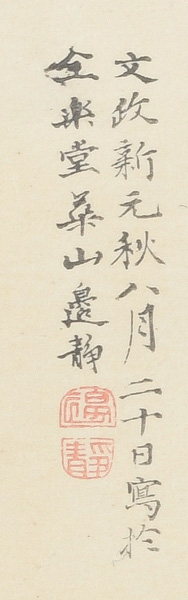 文政新元秋八月二十日寫於
全楽堂華山邉静
邉静